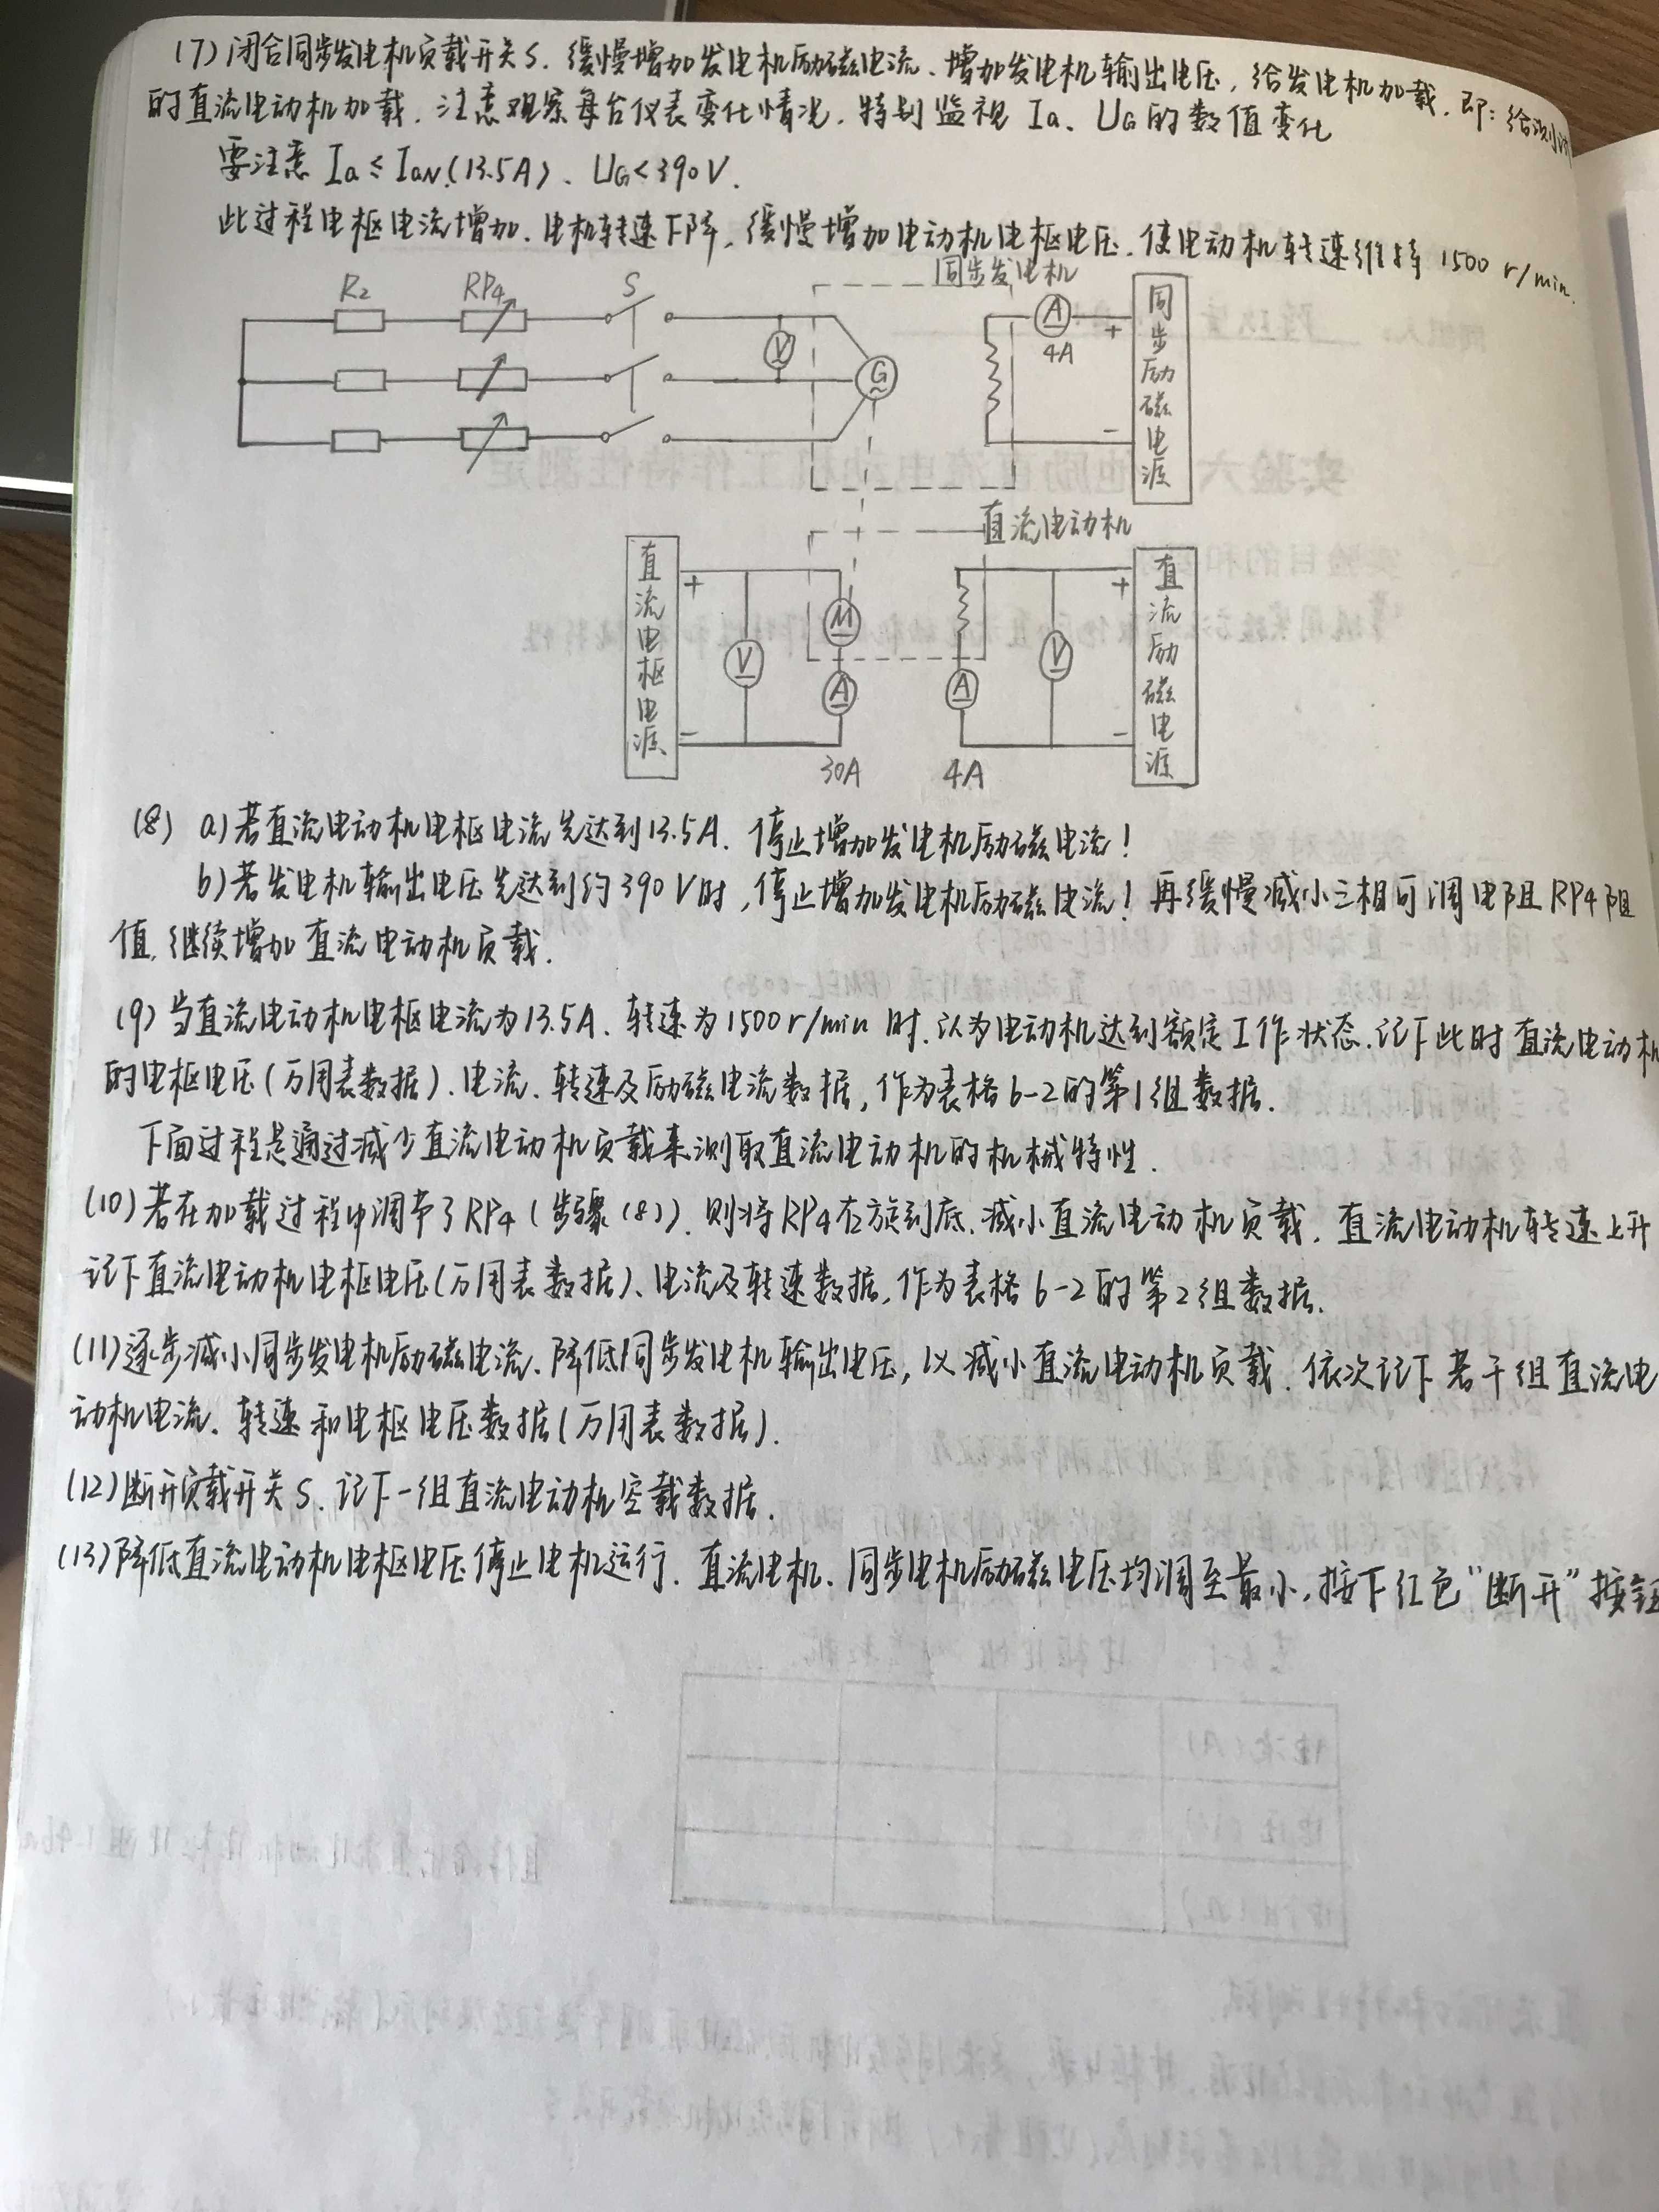 (7) 闭合同步发电机负载开关S. 缓慢增加发电机励磁电流、增加发电机输出电压, 给发电机加载. 即: 给
的直流电动机加载. 注意观察每台仪表变化情况. 特别监视 Ia、UG的数值变化
要注意 Ia≤IaN(13.5A)、UG<390V.
此过程电枢电流增加. 电机转速下降, 缓慢增加电动机电枢电压. 使电动机转速维持 1500 r/min.
同步发电机
R2 RP4 S
V
G
A
4A
+
-
同步励磁电源
直流电动机
直流电枢电源
+
-
V
M
A
30A
A
4A
V
+
-
直流励磁电源
(8) a)若直流电动机电枢电流先达到13.5A. 停止增加发电机励磁电流!
b)若发电机输出电压先达到约390V时, 停止增加发电机励磁电流! 再缓慢减小三相可调电阻RP4阻
值, 继续增加直流电动机负载.
(9) 当直流电动机电枢电流为13.5A. 转速为1500r/min时. 认为电动机达到额定工作状态. 记下此时直流电动机
的电枢电压(万用表数据). 电流. 转速及励磁电流数据, 作为表格6-2的第1组数据.
下面过程是通过减少直流电动机负载来测取直流电动机的机械特性.
(10) 若在加载过程中调节了RP4 (步骤(8)). 则将RP4左旋到底. 减小直流电动机负载. 直流电动机转速上升
记下直流电动机电枢电压(万用表数据)、电流及转速数据, 作为表格6-2的第2组数据.
(11)逐步减小同步发电机励磁电流. 降低同步发电机输出电压, 以减小直流电动机负载. 依次记下若干组直流电
动机电流. 转速和电枢电压数据(万用表数据).
(12)断开负载开关S. 记下一组直流电动机空载数据.
(13)降低直流电动机电枢电压停止电机运行. 直流电机. 同步电机励磁电压均调至最小. 按下红色"断开"按钮